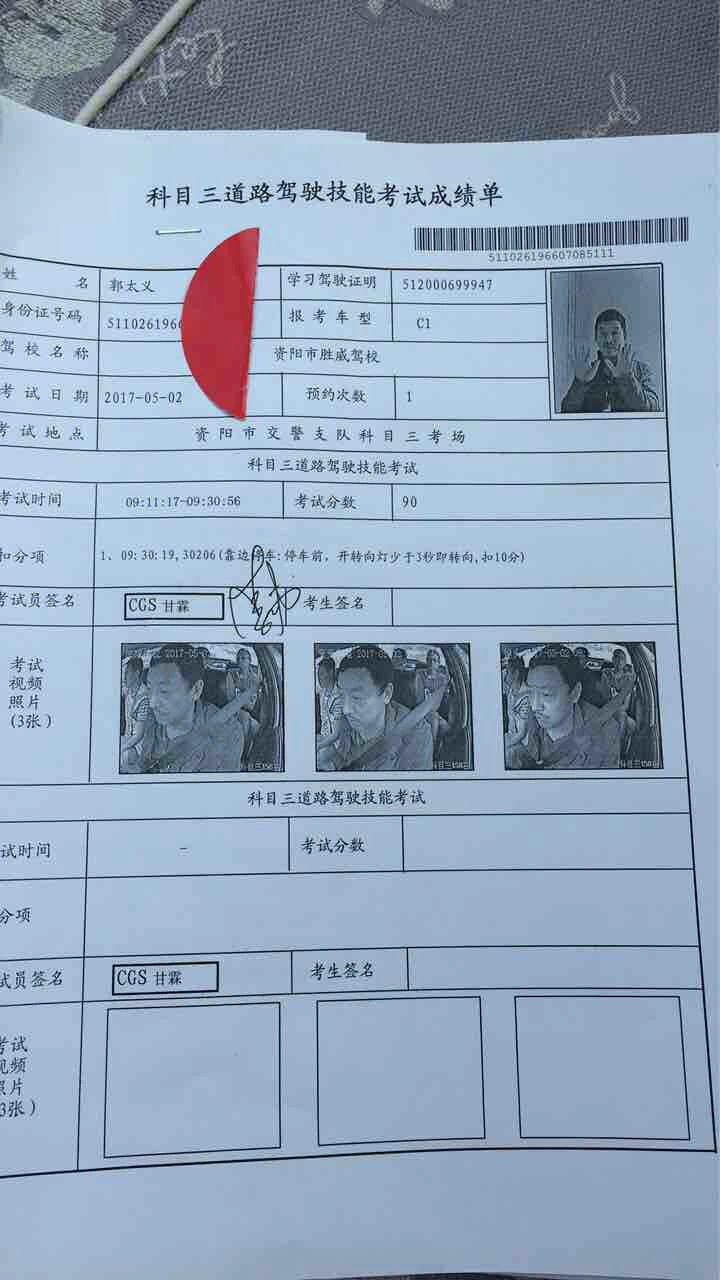 科目三道路驾驶技能考试成绩单
511026196607085111
姓 名 郭太义 学习驾驶证明 512000699947
身份证号码 5110261966 报考车型 C1
驾校名称 资阳市胜威驾校
考试日期 2017-05-02 预约次数 1
考试地点 资阳市交警支队科目三考场
科目三道路驾驶技能考试
考试时间 09:11:17-09:30:56 考试分数 90
扣分项 1、09:30:19,30206(靠边停车:停车前，开转向灯少于3秒即转向,扣10分)
考试员签名 CGS 甘霖 考生签名
考试
视频
照片
(3张)
科目三道路驾驶技能考试
试时间 - 考试分数
分项
试员签名 CGS 甘霖 考生签名
考试
视频
照片
3张)